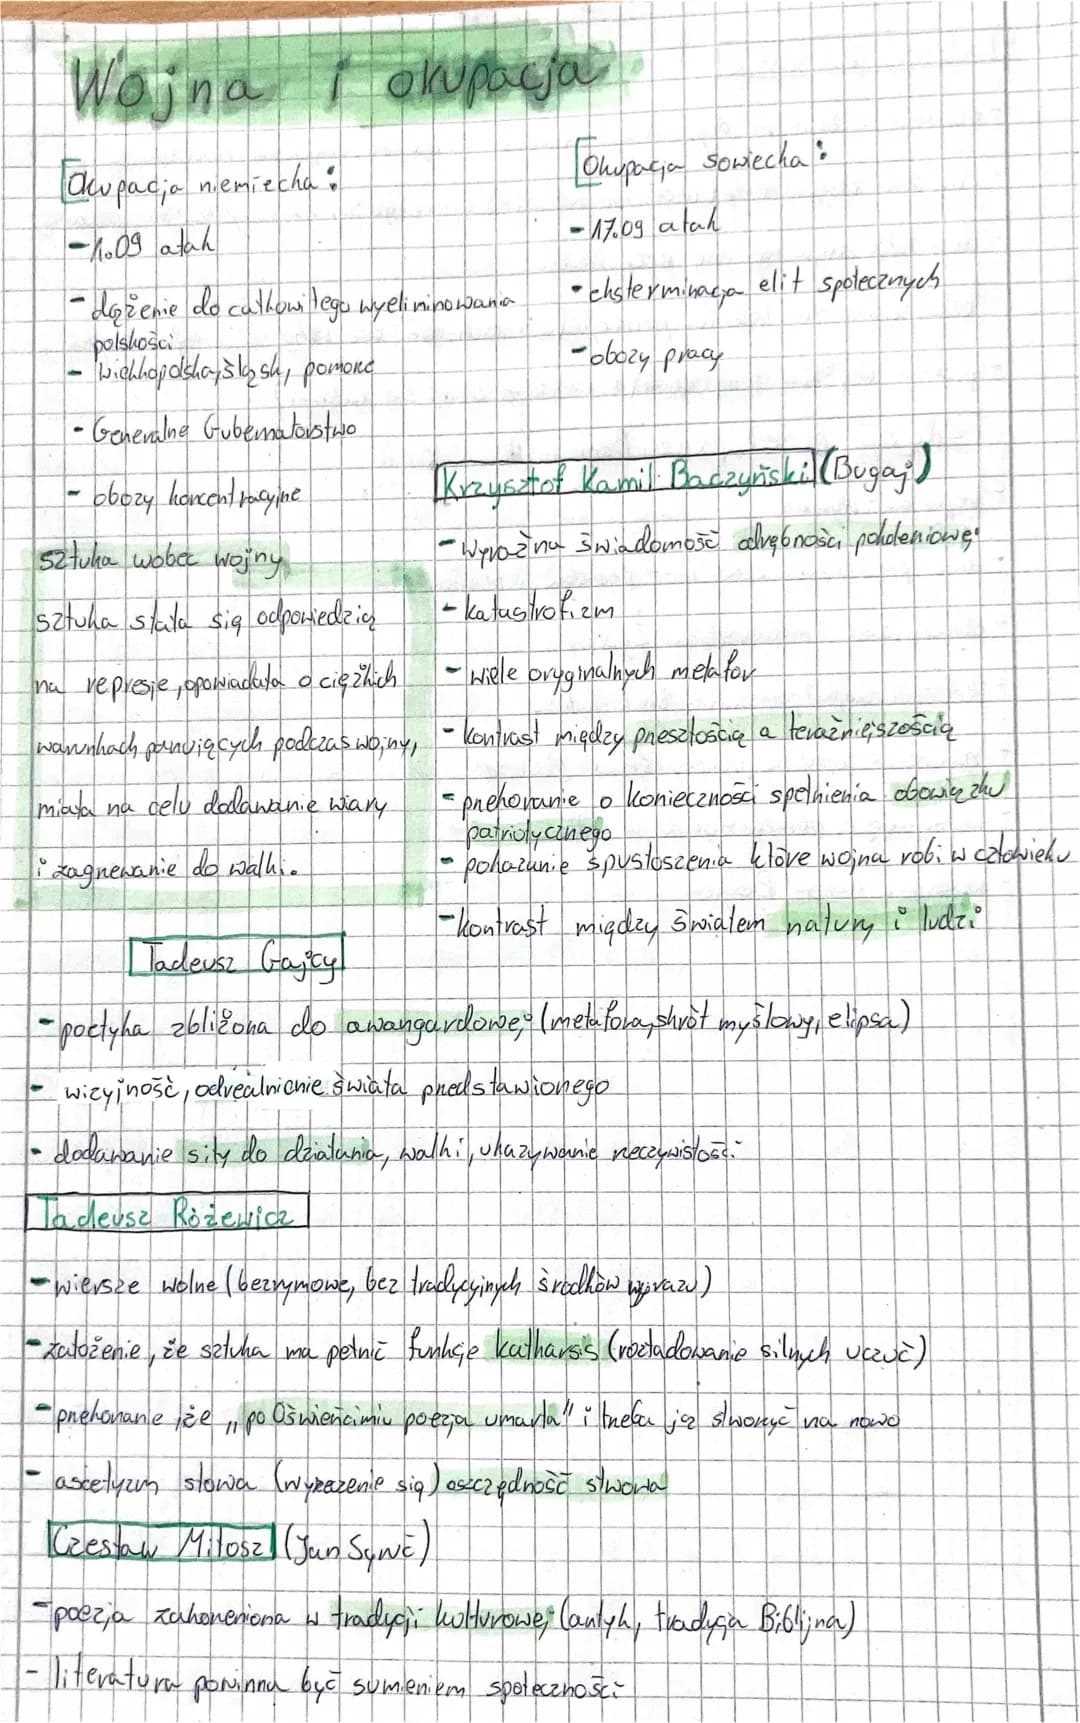 Wojna i okupacja
Okupacja niemiecka:
- 1.09 atak
- dążenie do całkowitego wyeliminowania
polskości
- Wielkopolska, Śląsk, pomorze
- Generalne Gubernatorstwo
- obozy koncentracyjne
Okupacja sowiecka:
- 17.09 atak
- eksterminacja elit społecznych
- obozy pracy
sztuka wobec wojny
sztuka stała się odpowiedzią
na represje, opowiadała o ciężkich
warunkach panujących podczas wojny,
miała na celu dodawanie wiary
i zagrzewanie do walki.
Krzysztof Kamil Baczyński (Bugaj)
- wyraźna świadomość odrębności pokoleniowej
- katastrofizm
- wiele oryginalnych metafor
- kontrast między przeszłością a teraźniejszością
- przekonanie o konieczności spełnienia obowiązku
patriotycznego
- pokazanie spustoszenia które wojna robi w człowieku
- kontrast między światem natury i ludzi
Tadeusz Gajcy
- poetyka zbliżona do awangardowej (metafora, skrót myślowy, elipsa)
- wizyjność, odrealnienie świata przedstawionego
- dodawanie siły do działania, walki, ukazywanie rzeczywistości
Tadeusz Różewicz
- wiersze wolne (bezrymowe, bez tradycyjnych środków wyrazu)
- założenie, że sztuka ma pełnić funkcje katharsis (rozładowanie silnych uczuć)
- przekonanie, że „po Oświęcimiu poezja umarła" i trzeba ją stworzyć na nowo
- ascetyzm słowa (wyrażenie się) oszczędność słowa
Czesław Miłosz (Jan Syruć)
- poezja zakorzeniona w tradycji kulturowej (antyk, tradycja Biblijna)
- literatura powinna być sumieniem społeczności